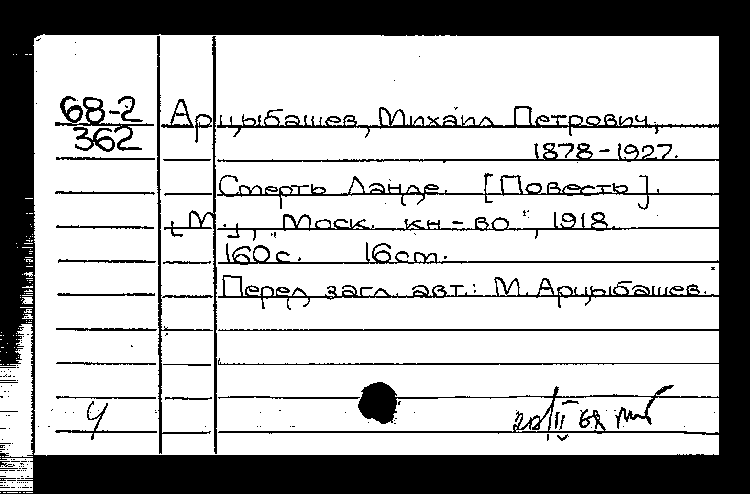 68-2
362
Арцыбашев, Михаил Петрович,
1878-1927.
Смерть Ланде. [Повесть].
[М.], "Моск. кн-во", 1918.
160 с. 16 см.
Перед загл. авт.: М. Арцыбашев.